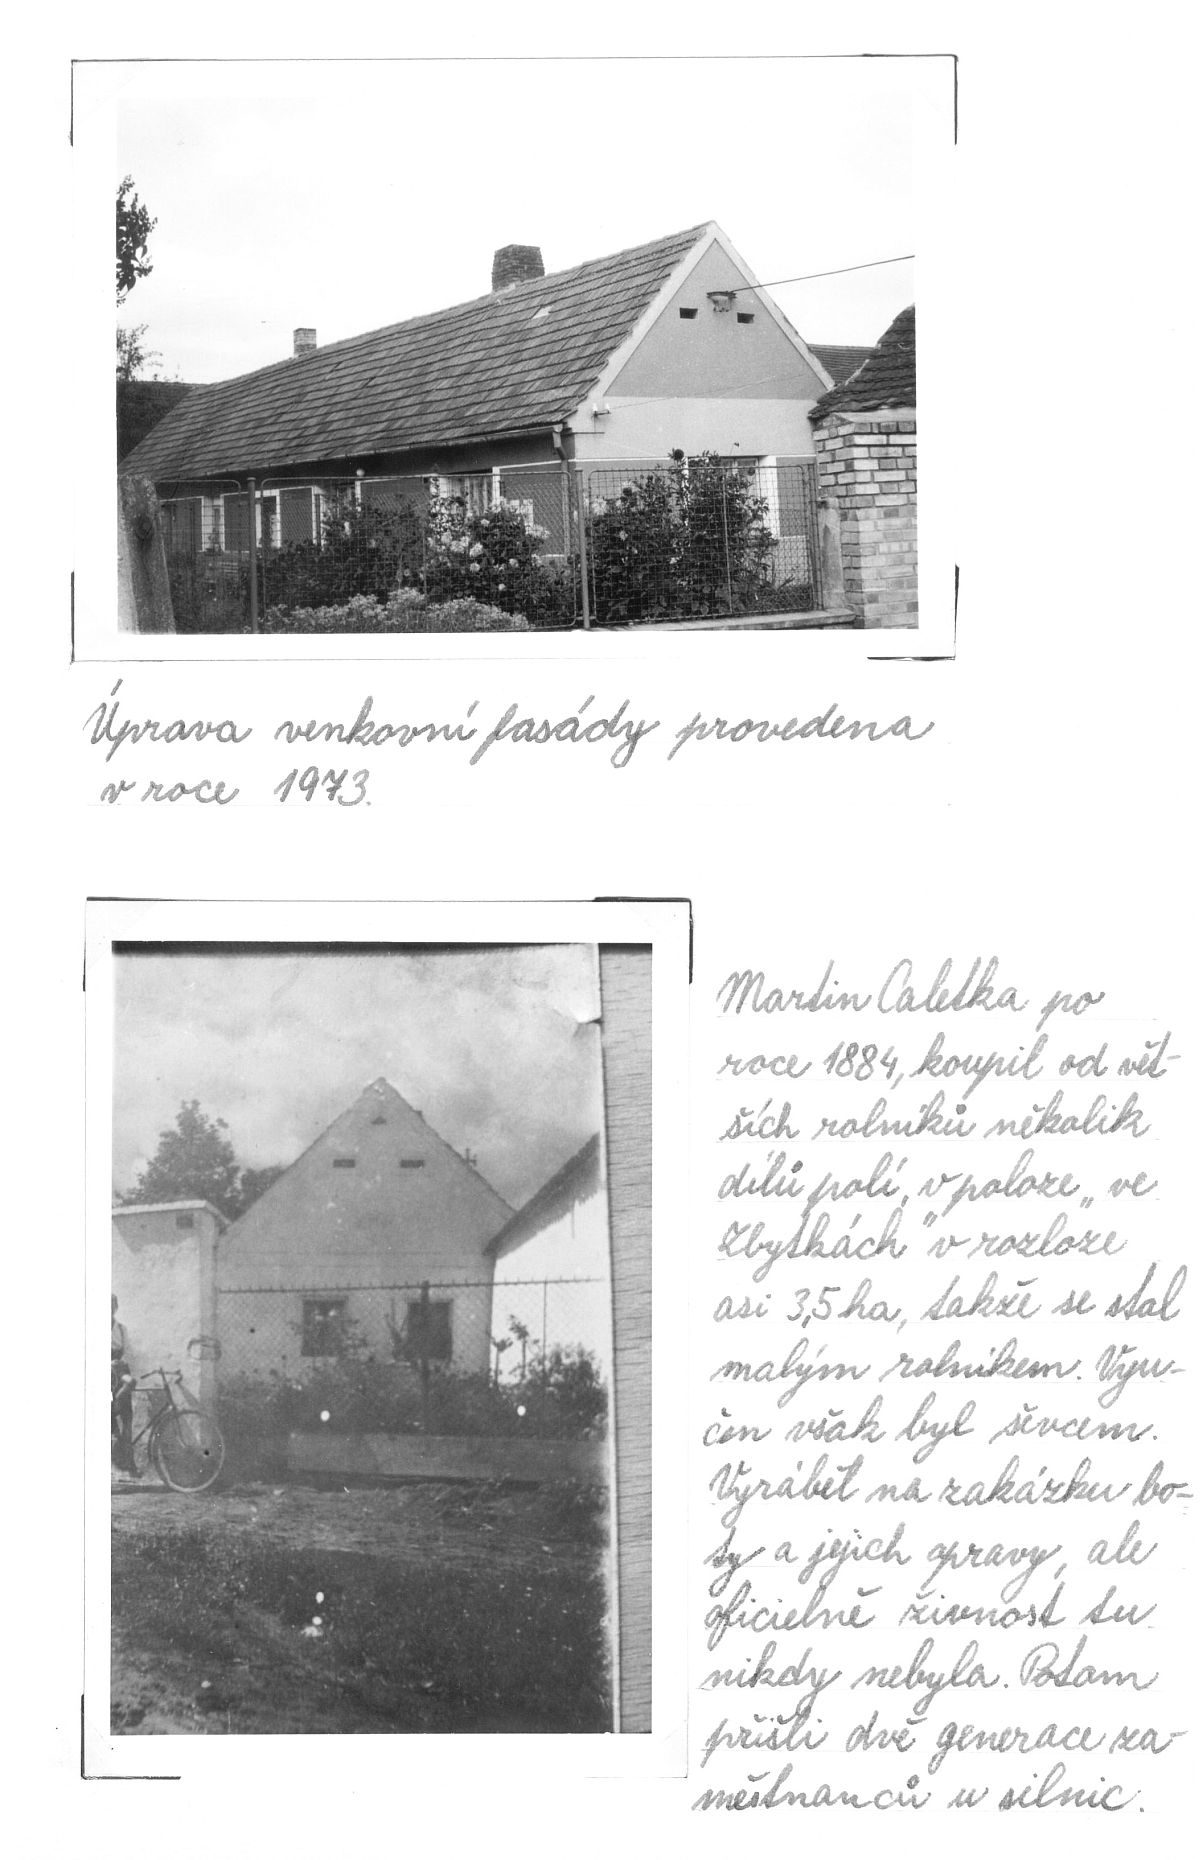 Úprava venkovní fasády provedena
v roce 1973.
Martin Caletka po
roce 1884, koupil od vět-
ších rolníků několik
dílů polí, v poloze „ ve
Zbytkách" v rozloze
asi 3,5 ha, takže se stal
malým rolníkem. Vyu-
čen však byl ševcem.
Vyrábět na zakázku bo-
ty a jejich opravy, ale
oficielně živnost tu
nikdy nebyla. Potom
přišli dvě generace za-
městnanců u silnic.